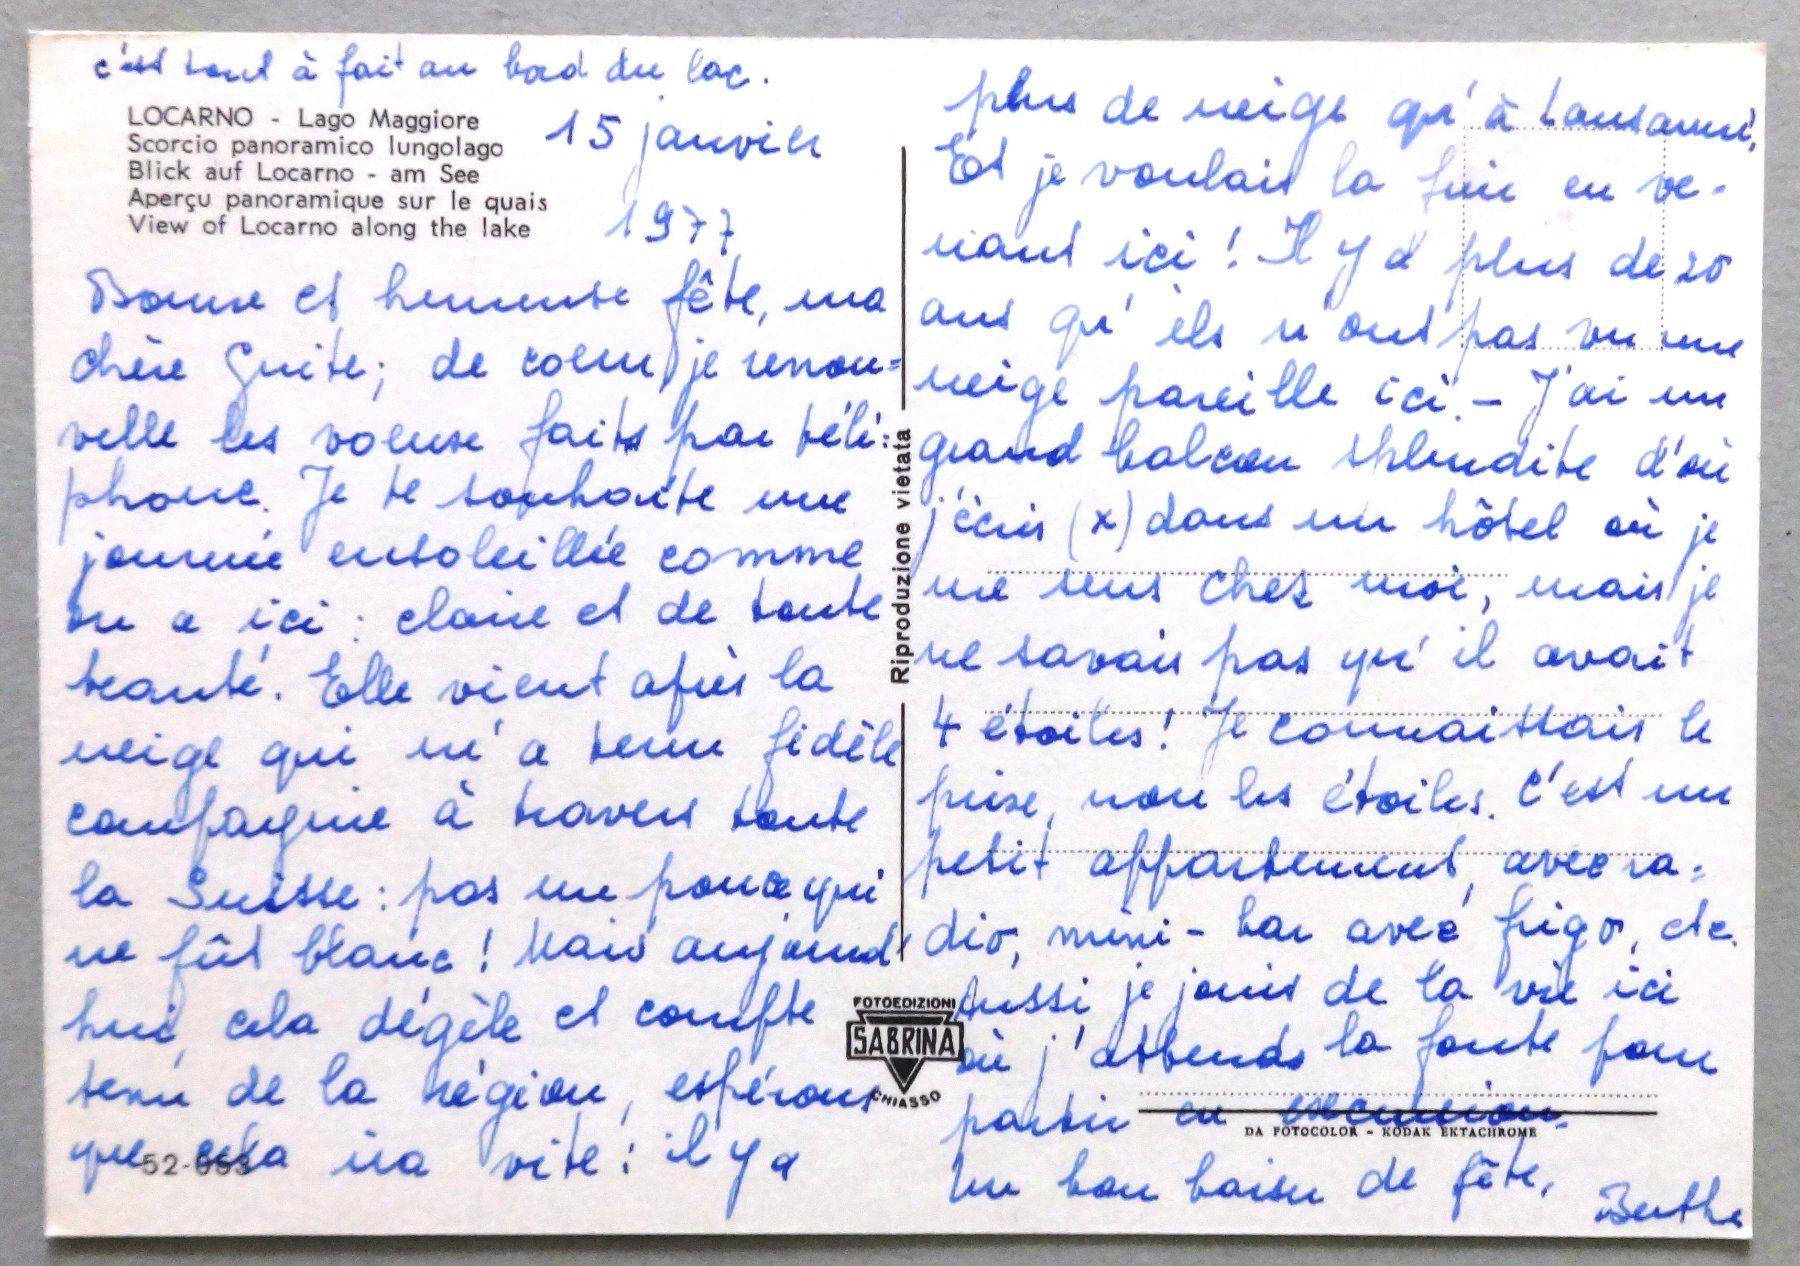 c'est tout à fait au bord du lac.
LOCARNO - Lago Maggiore
Scorcio panoramico lungolago
Blick auf Locarno - am See
Aperçu panoramique sur le quais
View of Locarno along the lake
15 janvier
1977
Bonne et heureuse fête, ma
chère Guite; de coeur je renou=
velle les voeux faits par télé=
phone. Je te souhaite une
journée ensoleillée comme
on a ici : claire et de toute
beauté. Elle vient après la
neige qui m'a tenu fidèle
compagnie à travers toute
la Suisse : pas un pouce qui
ne fût blanc ! Mais aujourd'
hui, cela dégèle et compte
tenu de la région, espérons
que cela ira vite : il y a
52-653
plus de neige qu'à Lausanne.
Et je voulais la fuir en ve-
nant ici ! Il y a plus de 20
ans qu'ils n'ont pas vu une
neige pareille ici. - J'ai un
grand balcon splendite d'où
j'écris (x) dans un hôtel où je
me sens chez moi, mais je
ne savais pas qu'il avait
4 étoiles ! Je connaissais le
prix, non les étoiles. C'est un
petit appartement, avec ra=
dio, mini-bar avec frigo, etc.
Aussi je jouis de la vie ici
où j'attends la fonte pour
partir en excursion.
Un bon baiser de fête,
Berthe
Riproduzione vietata
FOTOEDIZIONI
SABRINA
CHIASSO
DA FOTOCOLOR - KODAK EKTACHROME